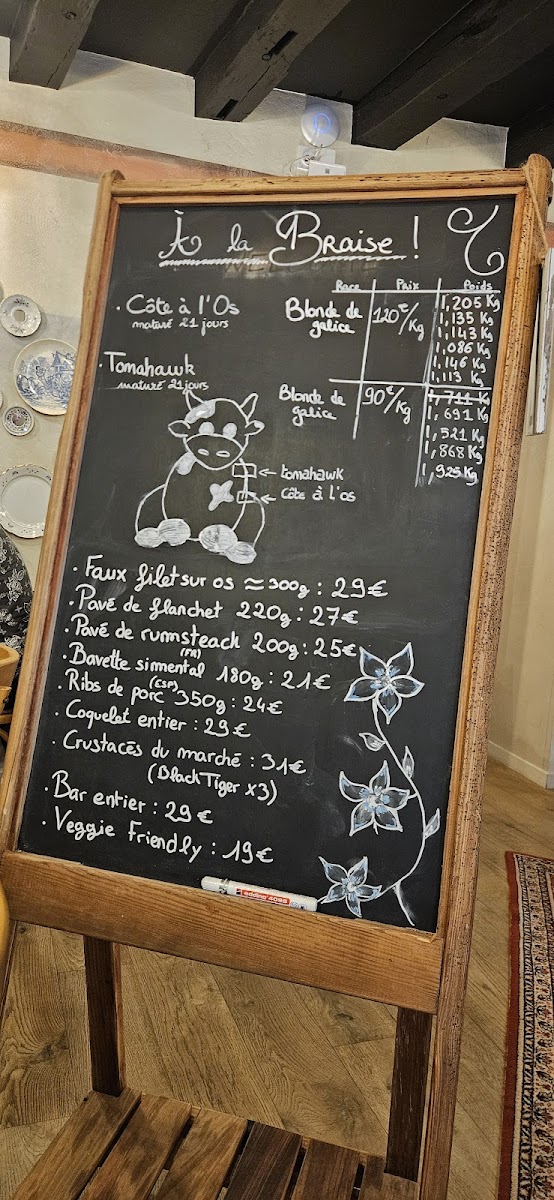 À la Braise !
Race Paix Poids
• Côte à l'Os
maturé 21 jours
Blonde de
galice
120€/Kg
1,205 Kg
1,135 Kg
1,143 Kg
1,086 Kg
1,146 Kg
1,113 Kg
• Tomahawk
maturé 21 jours
Blonde de
galice
90€/Kg
1,711 Kg
1,691 Kg
1,521 Kg
1,868 Kg
1,925 Kg
← tomahawk
← côte à l'os
• Faux filet sur os ≈ 300g : 29€
• Pavé de flanchet 220g : 27€
• Pavé de rumsteack 200g : 25€
(FR)
• Bavette simmental 180g : 21€
• Ribs de porc (ESP) 350g : 24€
• Coquelet entier : 29€
• Crustacés du marché : 31€
(Black Tiger x3)
• Bar entier : 29 €
• Veggie Friendly : 19€
edding 4095